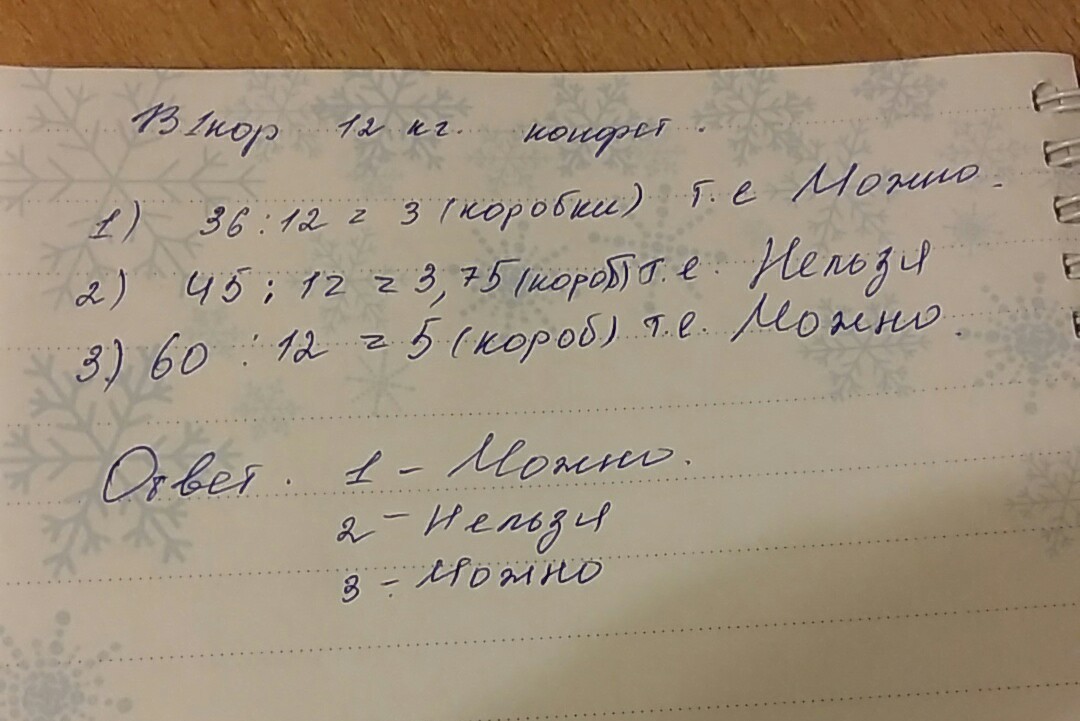 В 1кор 12 кг. конфет.
1) 36:12 = 3 (коробки) т.е Можно.
2) 45:12 = 3,75 (короб) т.е. Нельзя
3.) 60:12 = 5 (короб) т.е. Можно.
Ответ. 1 - Можно.
2 - Нельзя
3 - Можно